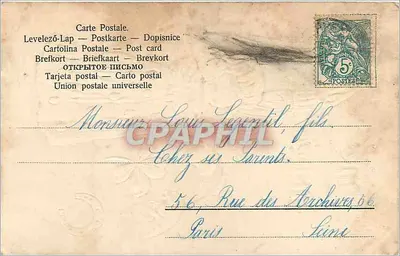 Carte Postale.
Levelező-Lap — Postkarte — Dopisnice
Cartolina Postale — Post card
Brefkort — Briefkaart — Brevkort
ОТКРЫТОЕ ПИСЬМО
Tarjeta postal — Carto postal
Union postale universelle
5c
POSTES
Monsieur Louis Legentil, fils.
CPAPHIL
Chez ses Parents.
56, Rue des Archives, 56
Paris Seine